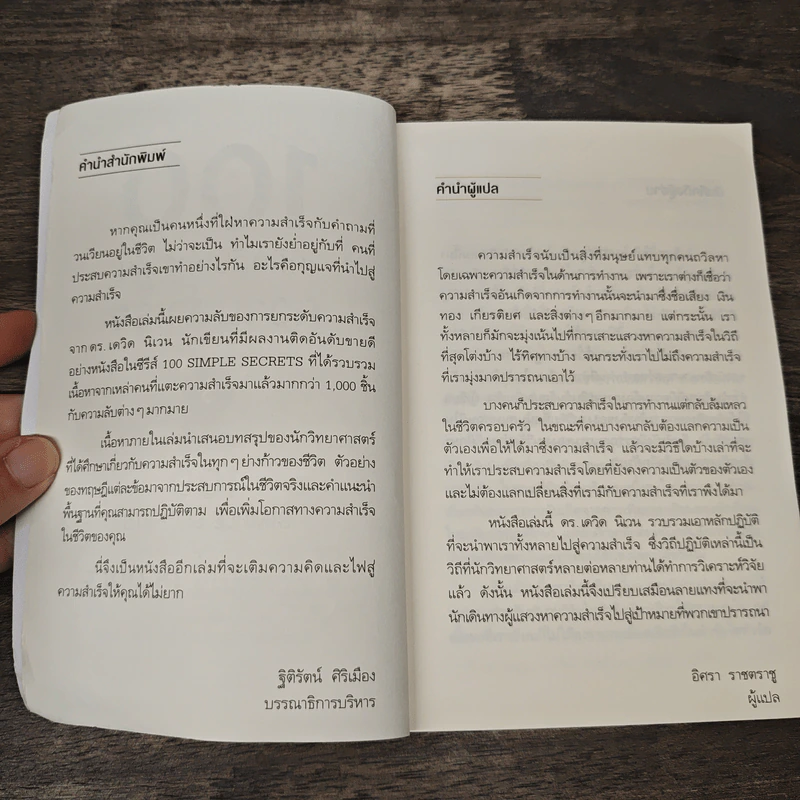 คำนำสำนักพิมพ์
หากคุณเป็นคนหนึ่งที่ใฝ่หาความสำเร็จกับคำถามที่
วนเวียนอยู่ในชีวิต ไม่ว่าจะเป็น ทำไมเรายังย่ำอยู่กับที่ คนที่
ประสบความสำเร็จเขาทำอย่างไรกัน อะไรคือกุญแจที่นำไปสู่
ความสำเร็จ
หนังสือเล่มนี้เผยความลับของการยกระดับความสำเร็จ
จาก ดร. เดวิด นิเวน นักเขียนที่มีผลงานติดอันดับขายดี
อย่างหนังสือในซีรีส์ 100 SIMPLE SECRETS ที่ได้รวบรวม
เนื้อหาจากเหล่าคนที่แตะความสำเร็จมาแล้วมากกว่า 1,000 ชิ้น
กับความลับต่าง ๆ มากมาย
เนื้อหาภายในเล่มนำเสนอบทสรุปของนักวิทยาศาสตร์
ที่ได้ศึกษาเกี่ยวกับความสำเร็จในทุก ๆ ย่างก้าวของชีวิต ตัวอย่าง
ของทฤษฎีแต่ละข้อมาจากประสบการณ์ในชีวิตจริงและคำแนะนำ
พื้นฐานที่คุณสามารถปฏิบัติตาม เพื่อเพิ่มโอกาสทางความสำเร็จ
ในชีวิตของคุณ
นี่จึงเป็นหนังสืออีกเล่มที่จะเติมความคิดและไฟสู่
ความสำเร็จให้คุณได้ไม่ยาก
ฐิติรัตน์ ศิริเมือง
บรรณาธิการบริหาร
คำนำผู้แปล
ความสำเร็จนับเป็นสิ่งที่มนุษย์แทบทุกคนถวิลหา
โดยเฉพาะความสำเร็จในด้านการทำงาน เพราะเราต่างก็เชื่อว่า
ความสำเร็จอันเกิดจากการทำงานนั้นจะนำมาซึ่งชื่อเสียง เงิน
ทอง เกียรติยศ และสิ่งต่าง ๆ อีกมากมาย แต่กระนั้น เรา
ทั้งหลายก็มักจะมุ่งเน้นไปที่การเสาะแสวงหาความสำเร็จในวิถี
ที่สุดโต่งบ้าง ไร้ทิศทางบ้าง จนกระทั่งเราไปไม่ถึงความสำเร็จ
ที่เรามุ่งมาดปรารถนาเอาไว้
บางคนก็ประสบความสำเร็จในการทำงานแต่กลับล้มเหลว
ในชีวิตครอบครัว ในขณะที่คนบางคนกลับต้องแลกความเป็น
ตัวเองเพื่อให้ได้มาซึ่งความสำเร็จ แล้วจะมีวิธีใดบ้างเล่าที่จะ
ทำให้เราประสบความสำเร็จโดยที่ยังคงความเป็นตัวของตัวเอง
และไม่ต้องแลกเปลี่ยนสิ่งที่เรามีกับความสำเร็จที่เราพึงได้มา
หนังสือเล่มนี้ ดร. เดวิด นิเวน รวบรวมเอาหลักปฏิบัติ
ที่จะนำพาเราทั้งหลายไปสู่ความสำเร็จ ซึ่งวิถีปฏิบัติเหล่านี้เป็น
วิถีที่นักวิทยาศาสตร์หลายต่อหลายท่านได้ทำการวิเคราะห์วิจัย
แล้ว ดังนั้น หนังสือเล่มนี้จึงเปรียบเสมือนลายแทงที่จะนำพา
นักเดินทางผู้แสวงหาความสำเร็จไปสู่เป้าหมายที่พวกเขาปรารถนา
อิศรา ราชตราชู
ผู้แปล